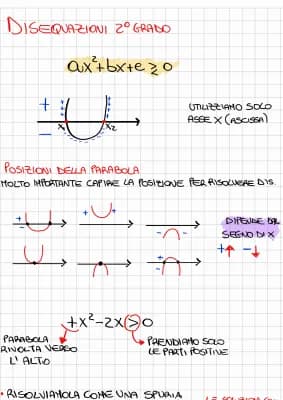 DISEQUAZIONI 2° GRADO
ax²+bx+c ≥ 0
+
−
x₁
x₂
UTILIZZIAMO SOLO
ASSE X (ASCISSA)
POSIZIONI DELLA PARABOLA
MOLTO IMPORTANTE CAPIRE LA POSIZIONE PER RISOLVERE DIS.
DIPENDE DAL
SEGNO DI X
+ −
+x²-2x>0
PARABOLA
RIVOLTA VERSO
L'ALTO
PRENDIAMO SOLO
LE PARTI POSITIVE
• RISOLVIAMOLA COME UNA SPURIA